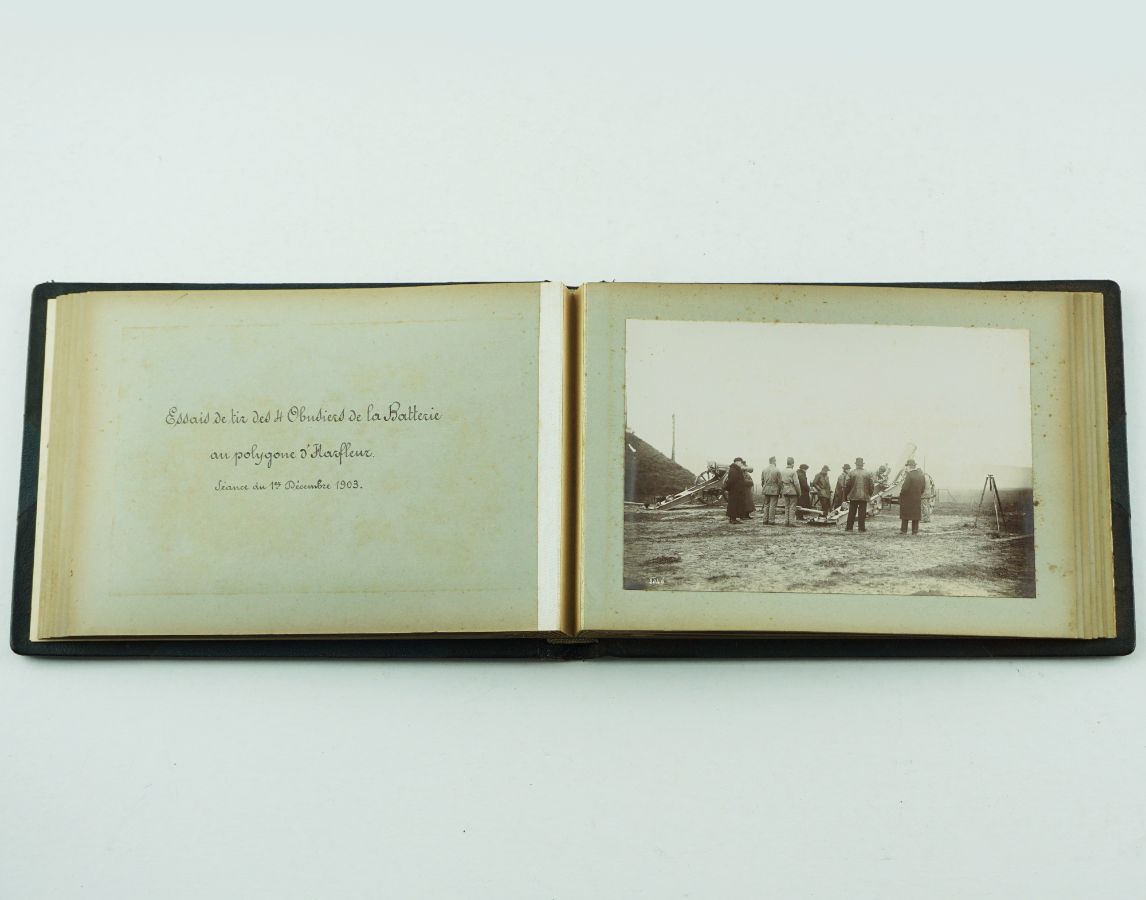 Essais de tir des 4 Obusiers de la Batterie
au polygone d'Harfleur.
Séance du 1er Décembre 1903.